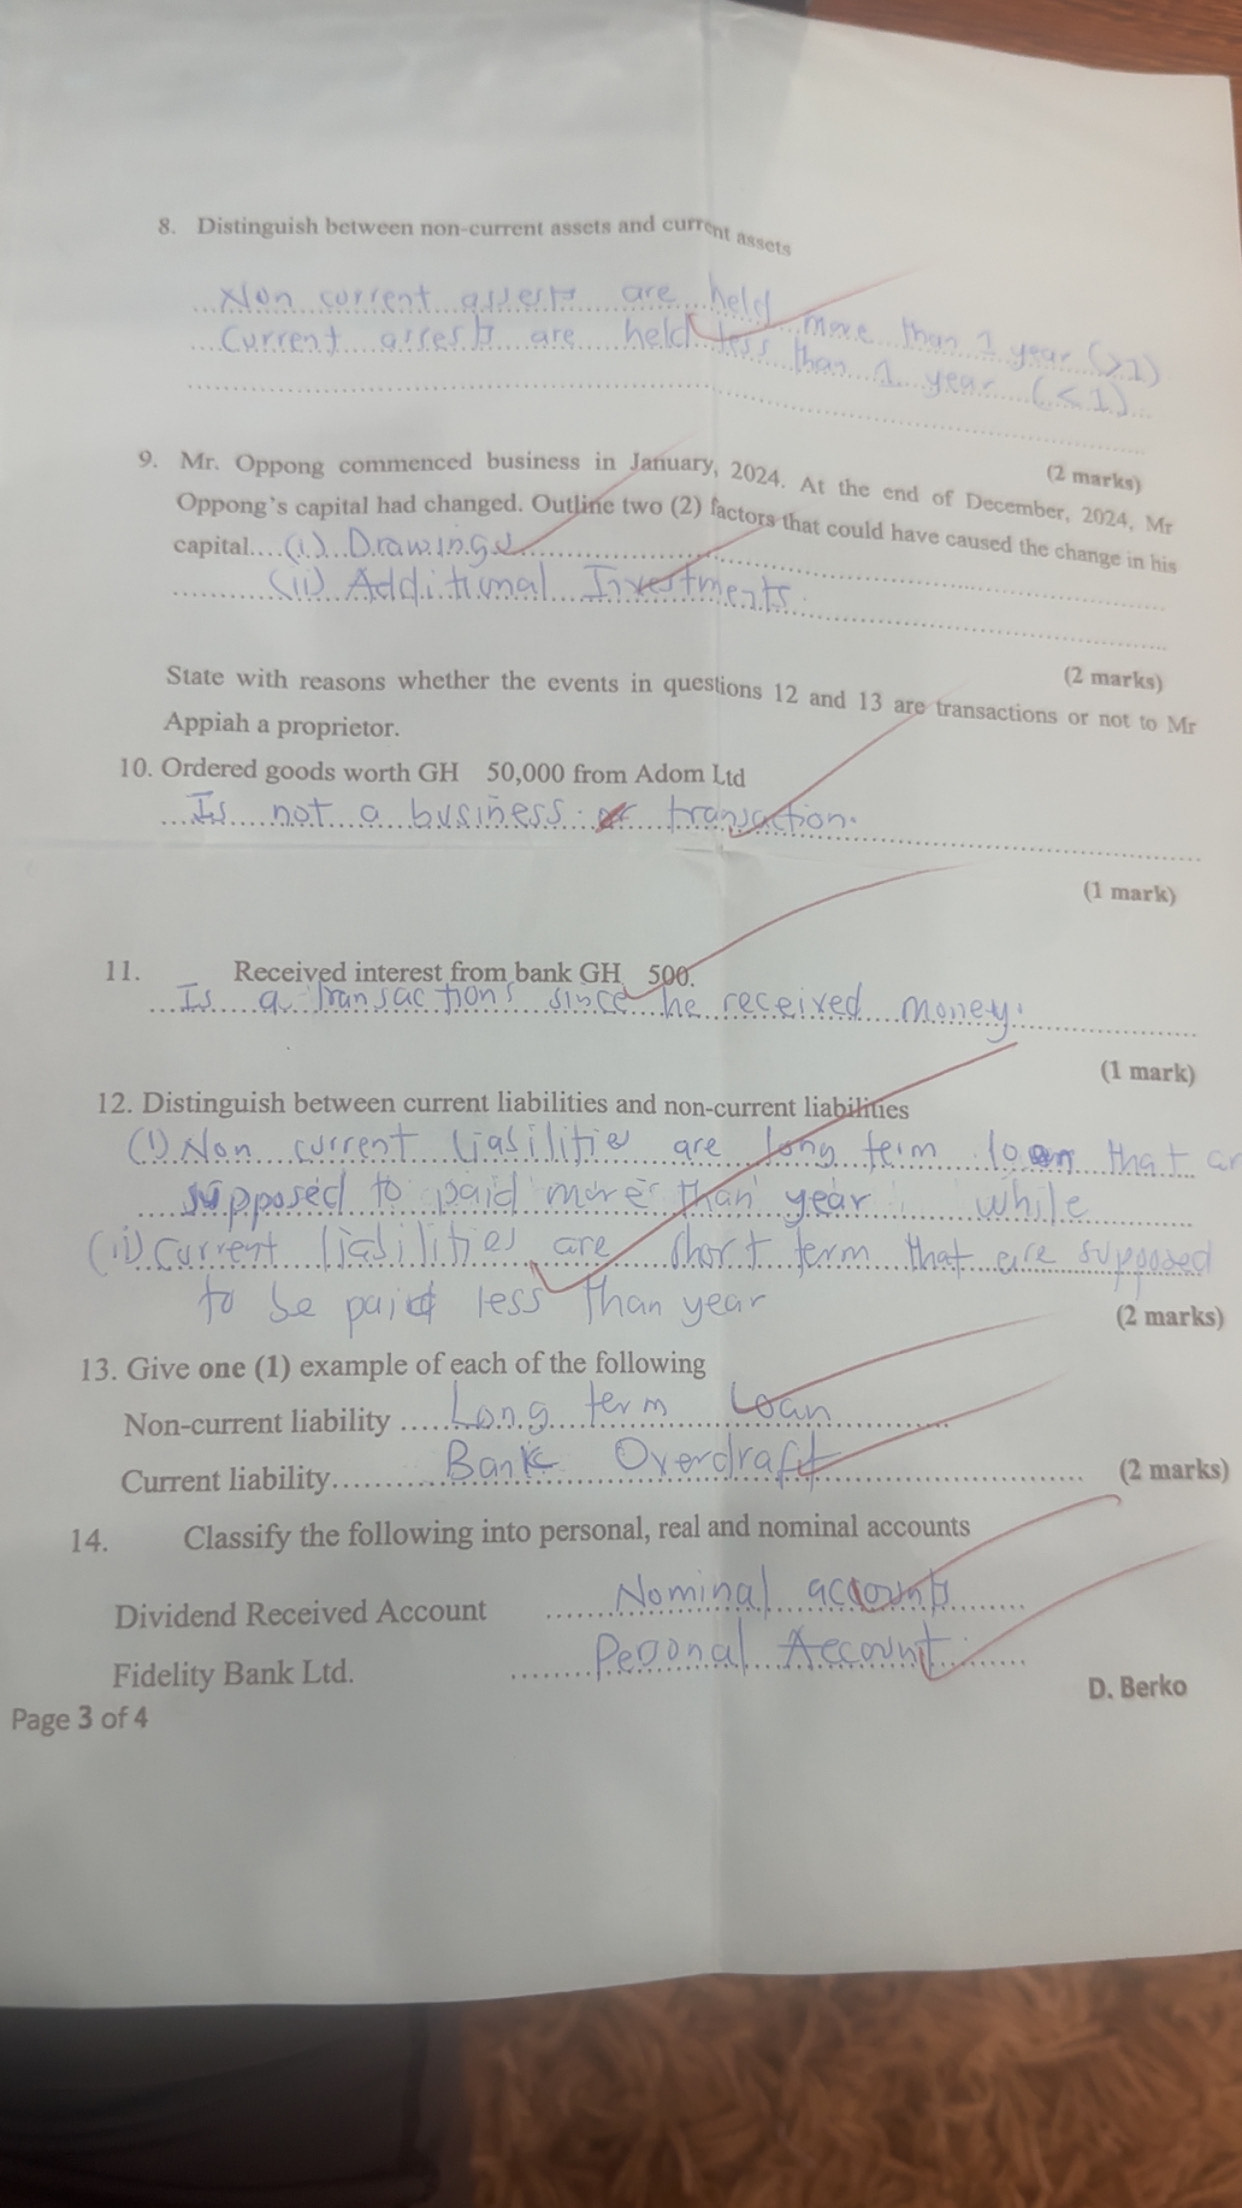 8. Distinguish between non-current assets and current assets
Non current assests are held more than 1 year (>1)
Current assests are held less than 1 year (<1)
(2 marks)
9. Mr. Oppong commenced business in January, 2024. At the end of December, 2024, Mr
Oppong's capital had changed. Outline two (2) factors that could have caused the change in his
capital....(i) Drawings
(ii) Additional Investments
(2 marks)
State with reasons whether the events in questions 12 and 13 are transactions or not to Mr
Appiah a proprietor.
10. Ordered goods worth GH 50,000 from Adom Ltd
Is not a business transaction.
(1 mark)
11. Received interest from bank GH 500.
Is a transactions since he received money.
(1 mark)
12. Distinguish between current liabilities and non-current liabilities
(i) Non current liabilities are long term loan that ar
supposed to paid more than year while
(ii) Current liabilities are short term that are supposed
to be paid less than year
(2 marks)
13. Give one (1) example of each of the following
Non-current liability ....Long term Loan
Current liability....Bank Overdraft
(2 marks)
14. Classify the following into personal, real and nominal accounts
Dividend Received Account Nominal accounts
Fidelity Bank Ltd. Personal Account
D. Berko
Page 3 of 4